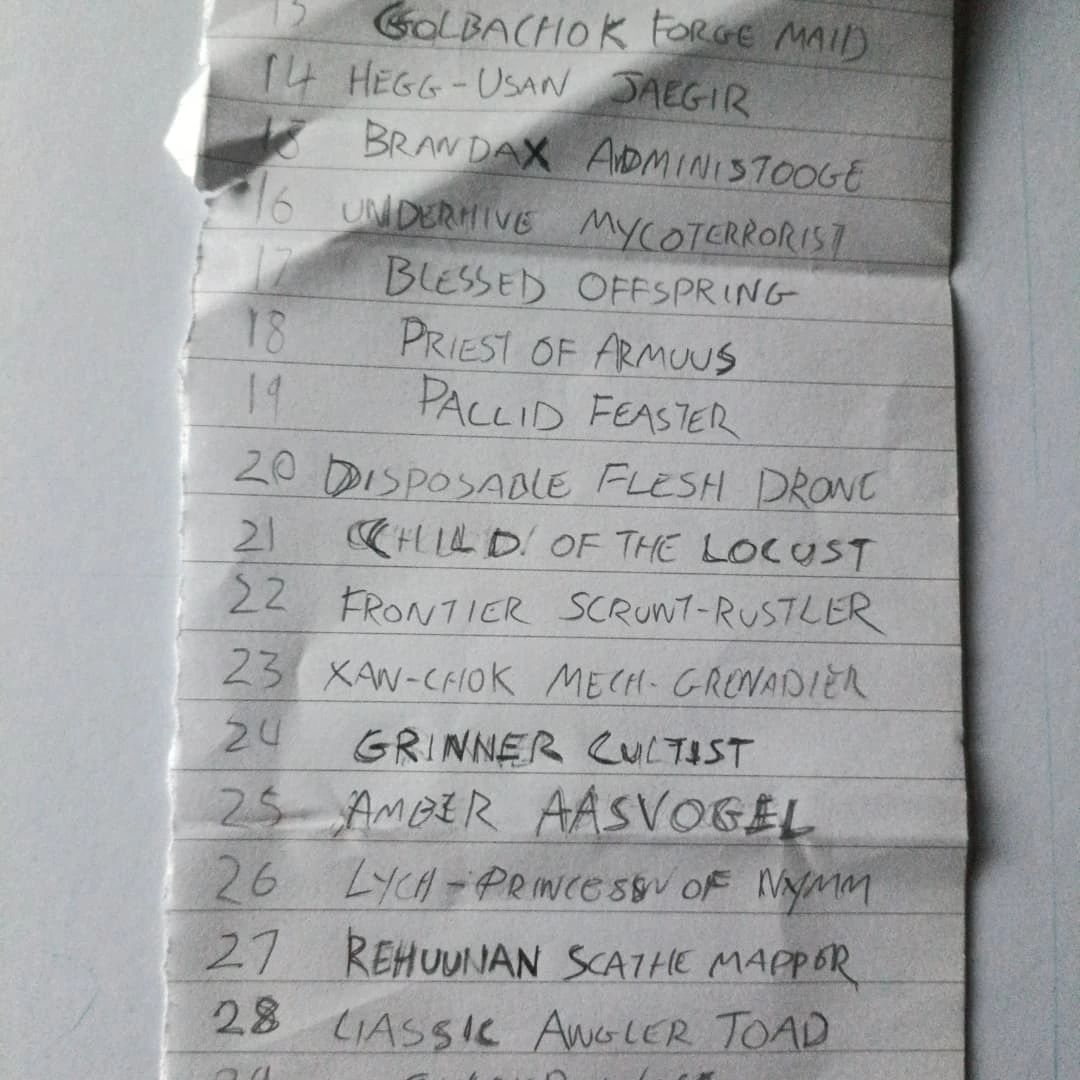 13 GOLBACHOK FORGE MAID
14 HEGG-USAN JAEGIR
15 BRANDAX ADMINISTOOGE
16 UNDERHIVE MYCOTERRORIST
17 BLESSED OFFSPRING
18 PRIEST OF ARMUUS
19 PALLID FEASTER
20 DISPOSABLE FLESH DRONE
21 CHILD OF THE LOCUST
22 FRONTIER SCRUNT-RUSTLER
23 XAN-CHOK MECH-GRENADIER
24 GRINNER CULTIST
25 AMBER AASVOGEL
26 LYCH-PRINCESS OF NYMM
27 REHUUNAN SCATHE MAPPER
28 CLASSIC ANGLER TOAD
29